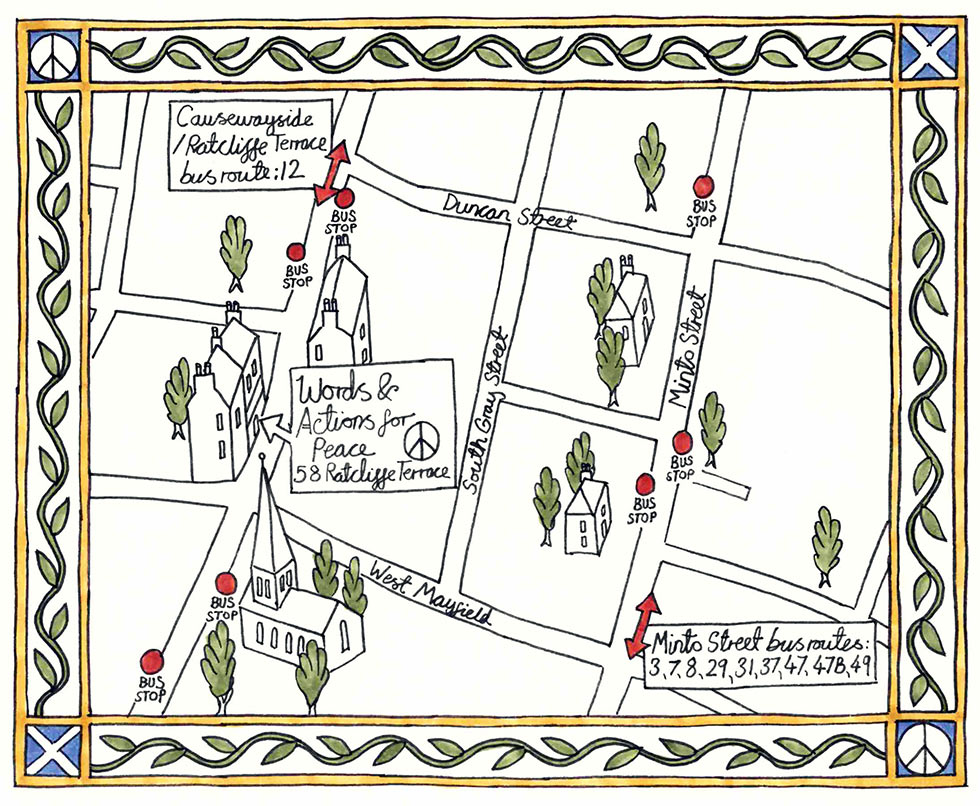 Causewayside
/Ratcliffe Terrace
bus route:12
BUS
STOP
BUS
STOP
Duncan Street
BUS
STOP
Minto Street
South Gray Street
Words &
Actions for
Peace
58 Ratcliffe Terrace
BUS
STOP
BUS
STOP
West Mayfield
BUS
STOP
BUS
STOP
Minto Street bus routes:
3,7,8,29,31,37,47,47B,49